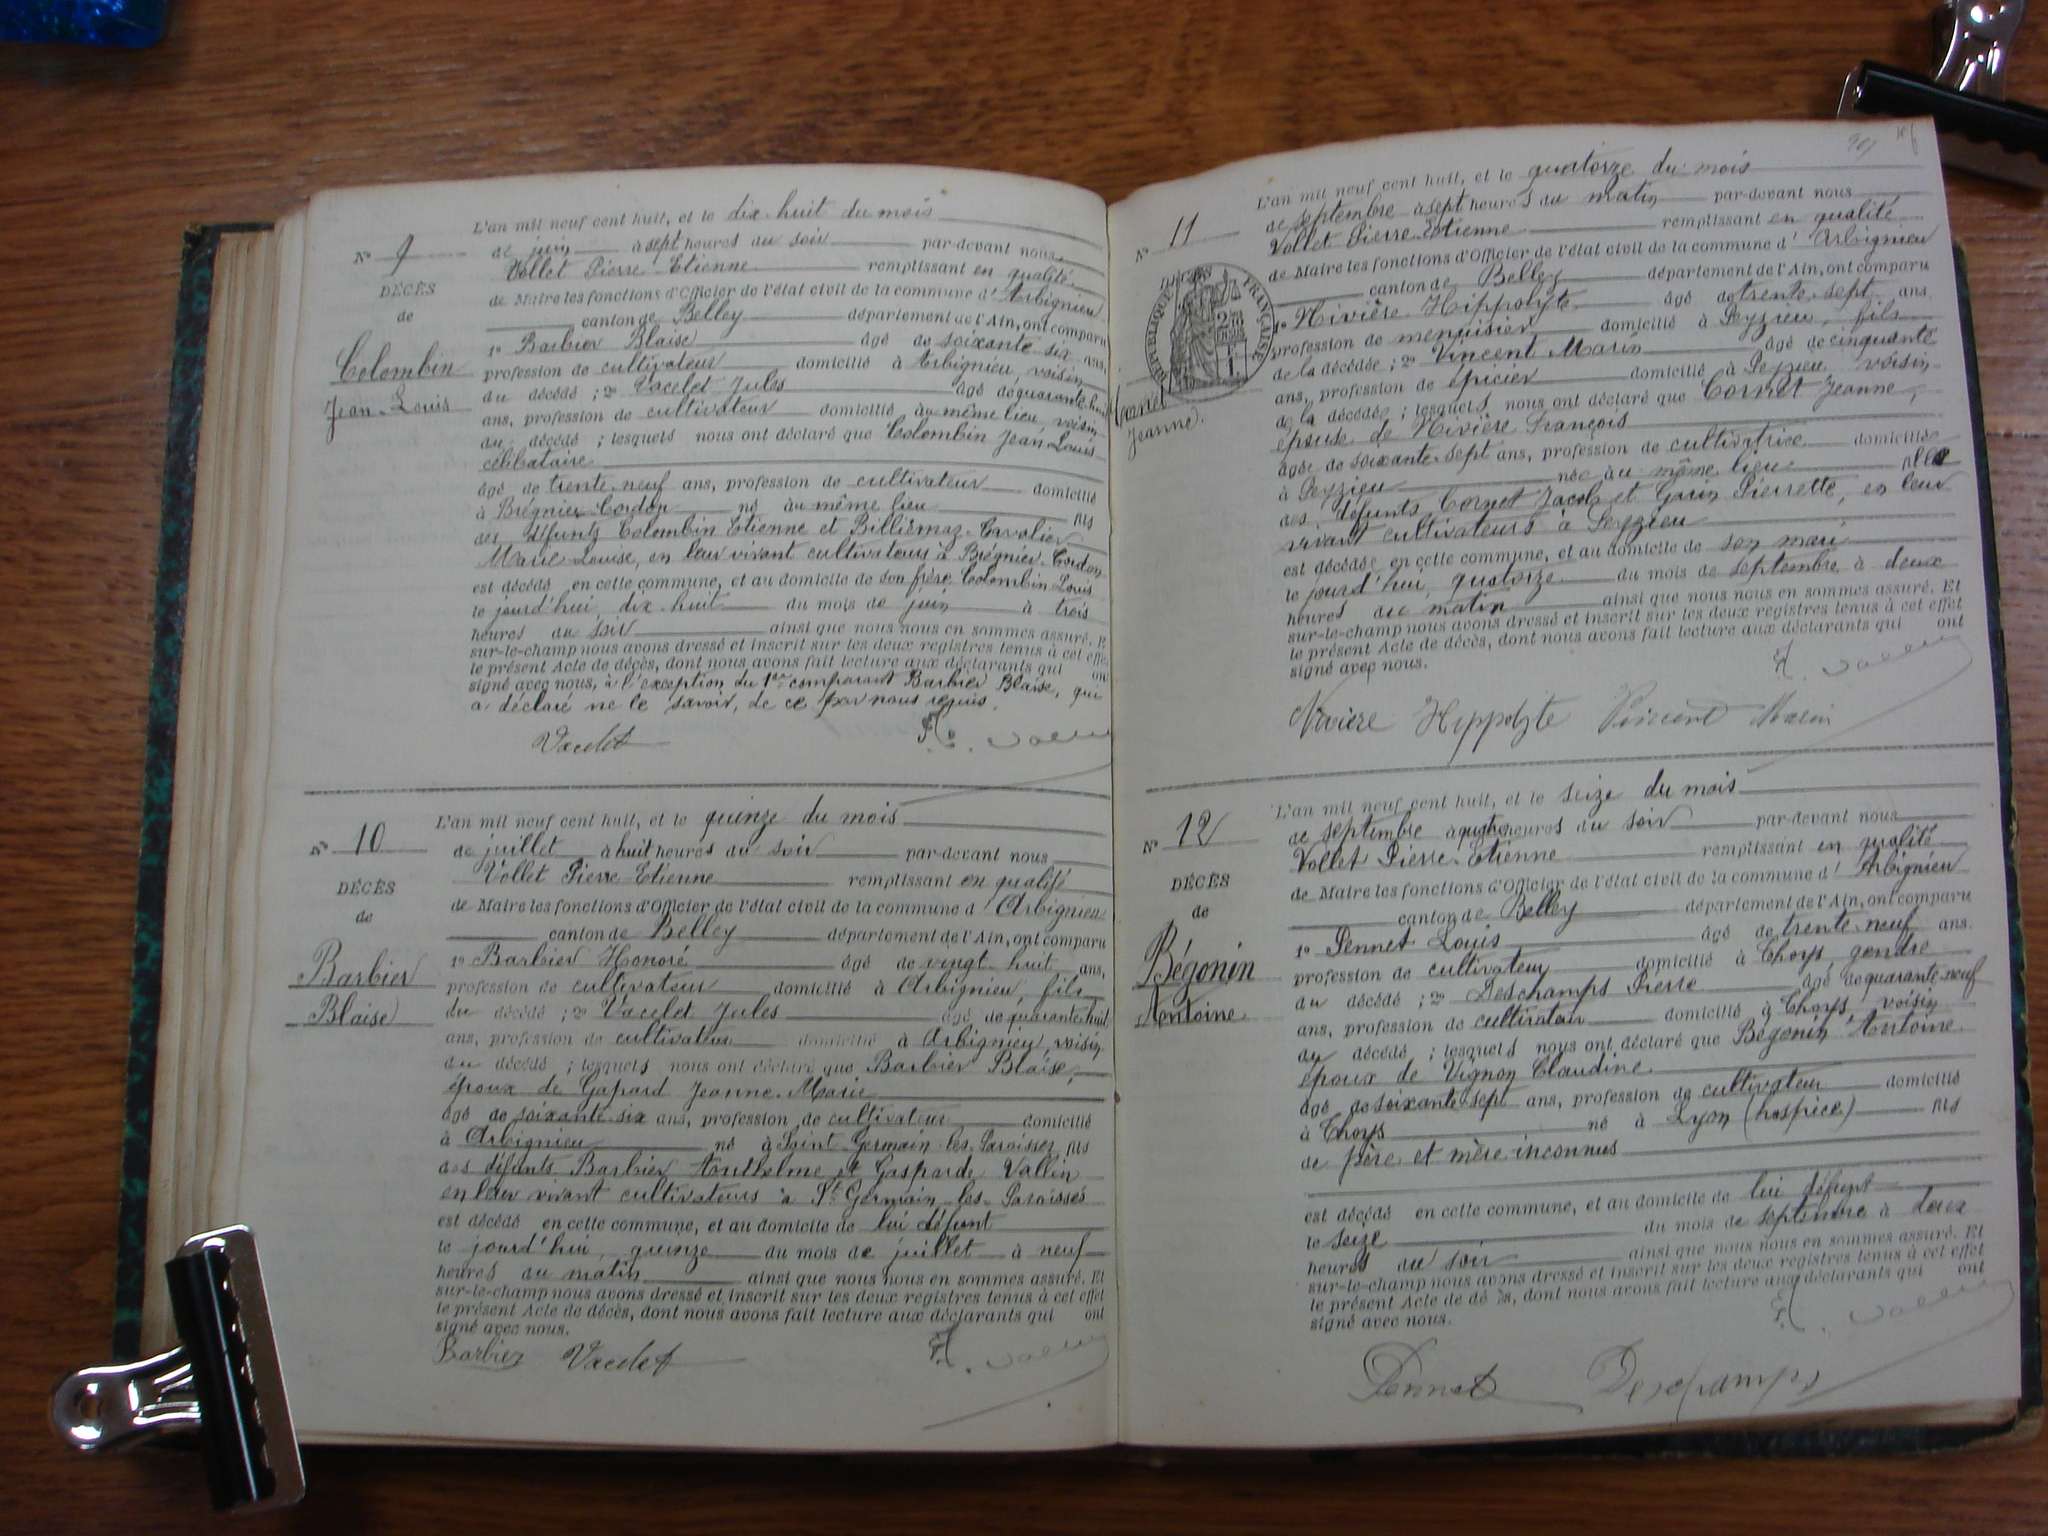 L'an mil neuf cent huit, et le dix-huit du mois
N° 9
de juin à sept heures du soir par-devant nous
Vollet Pierre-Etienne remplissant en qualité
DÉCÈS
de Maire les fonctions d'Officier de l'état civil de la commune d'Arbignieu
de
canton de Belley département de l'Ain, ont comparu
1° Barbier Blaise âgé de soixante-six ans,
Colombin
profession de cultivateur domicilié à Arbignieu, voisin
Jean-Louis
du décédé ; 2° Vacelet Jules âgé de quarante-huit
ans, profession de cultivateur domicilié au même lieu, voisin
du décédé ; lesquels nous ont déclaré que Colombin Jean-Louis
célibataire
âgé de trente-neuf ans, profession de cultivateur domicilié
à Brégnier-Cordon né au même lieu fils
des défunts Colombin Etienne et Billiemaz-Cavalier
Marie-Louise, en leur vivant cultivateurs à Brégnier-Cordon
est décédé en cette commune, et au domicile de son frère Colombin Louis
le jourd'hui, dix-huit du mois de juin à trois
heures du soir ainsi que nous nous en sommes assuré. Et
sur-le-champ nous avons dressé et inscrit sur les deux registres tenus à cet effet
le présent Acte de décès, dont nous avons fait lecture aux déclarants qui ont
signé avec nous, à l'exception du 1er comparant Barbier Blaise, qui
a déclaré ne le savoir, de ce par nous requis.
Vacelet
L'an mil neuf cent huit, et le quinze du mois
N° 10
de juillet à huit heures du soir par-devant nous
Vollet Pierre-Etienne remplissant en qualité
DÉCÈS
de Maire les fonctions d'Officier de l'état civil de la commune d'Arbignieu
de
canton de Belley département de l'Ain, ont comparu
1° Barbier Honoré âgé de vingt-huit ans,
Barbier
profession de cultivateur domicilié à Arbignieu, fils
Blaise
du décédé ; 2° Vacelet Jules âgé de quarante-huit
ans, profession de cultivateur domicilié à Arbignieu, voisin
du décédé ; lesquels nous ont déclaré que Barbier Blaise,
époux de Gapard Jeanne-Marie
âgé de soixante-six ans, profession de cultivateur domicilié
à Arbignieu né à Saint-Germain-les-Paroisses fils
des défunts Barbier Anthelme et Gasparde Vallin
en leur vivant cultivateurs à St-Germain-les-Paroisses
est décédé en cette commune, et au domicile de lui défunt
le jourd'hui, quinze du mois de juillet à neuf
heures du matin ainsi que nous nous en sommes assuré. Et
sur-le-champ nous avons dressé et inscrit sur les deux registres tenus à cet effet
le présent Acte de décès, dont nous avons fait lecture aux déclarants qui ont
signé avec nous.
Barbier Vacelet
L'an mil neuf cent huit, et le quatorze du mois
N° 11
de septembre à sept heures du matin par-devant nous
Vollet Pierre-Etienne remplissant en qualité
de Maire les fonctions d'Officier de l'état civil de la commune d'Arbignieu
canton de Belley département de l'Ain, ont comparu
RÉPUBLIQUE FRANÇAISE
1° Nivière Hippolyte âgé de trente-sept ans
profession de menuisier domicilié à Peyzieu, fils
de la décédée ; 2° Vincent Marin âgé de cinquante
ans, profession de épicier domicilié à Peyzieu voisin
Cornet
Jeanne
de la décédée ; lesquels nous ont déclaré que Cornet Jeanne,
épouse de Nivière François
âgée de soixante-sept ans, profession de cultivatrice domiciliée
à Peyzieu née au même lieu fille
des défunts Cornet Jacob et Garin Pierrette, en leur
vivant cultivateurs à Peyzieu
est décédée en cette commune, et au domicile de son mari
le jourd'hui, quatorze du mois de septembre à deux
heures du matin ainsi que nous nous en sommes assuré. Et
sur-le-champ nous avons dressé et inscrit sur les deux registres tenus à cet effet
le présent Acte de décès, dont nous avons fait lecture aux déclarants qui ont
signé avec nous.
Nivière Hippolyte Vincent Marin
L'an mil neuf cent huit, et le seize du mois
N° 12
de septembre à quatre heures du soir par-devant nous
Vollet Pierre-Etienne remplissant en qualité
DÉCÈS
de Maire les fonctions d'Officier de l'état civil de la commune d'Arbignieu
de
canton de Belley département de l'Ain, ont comparu
1° Pennet Louis âgé de trente-neuf ans.
Bégonin
profession de cultivateur domicilié à Thoys, gendre
Antoine
du décédé ; 2° Deschamps Pierre âgé de quarante-neuf
ans, profession de cultivateur domicilié à Thoys, voisin
du décédé ; lesquels nous ont déclaré que Bégonin Antoine
époux de Vignon Claudine
âgé de soixante-sept ans, profession de cultivateur domicilié
à Thoys né à Lyon (hospice) fils
de père et mère inconnus
est décédé en cette commune, et au domicile de lui défunt
le seize du mois de septembre à deux
heures du soir ainsi que nous nous en sommes assuré. Et
sur-le-champ nous avons dressé et inscrit sur les deux registres tenus à cet effet
le présent Acte de décès, dont nous avons fait lecture aux déclarants qui ont
signé avec nous.
Pennet Deschamps